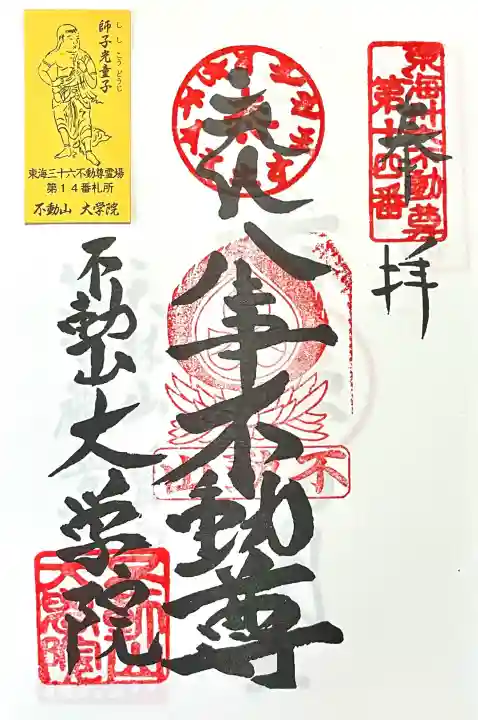 東海卅六不動尊
第十四番
奉拝
八事不動尊
不動山
不動山大学院
師子光童子
ししこうどうじ
東海三十六不動尊霊場
第14番札所
不動山 大学院